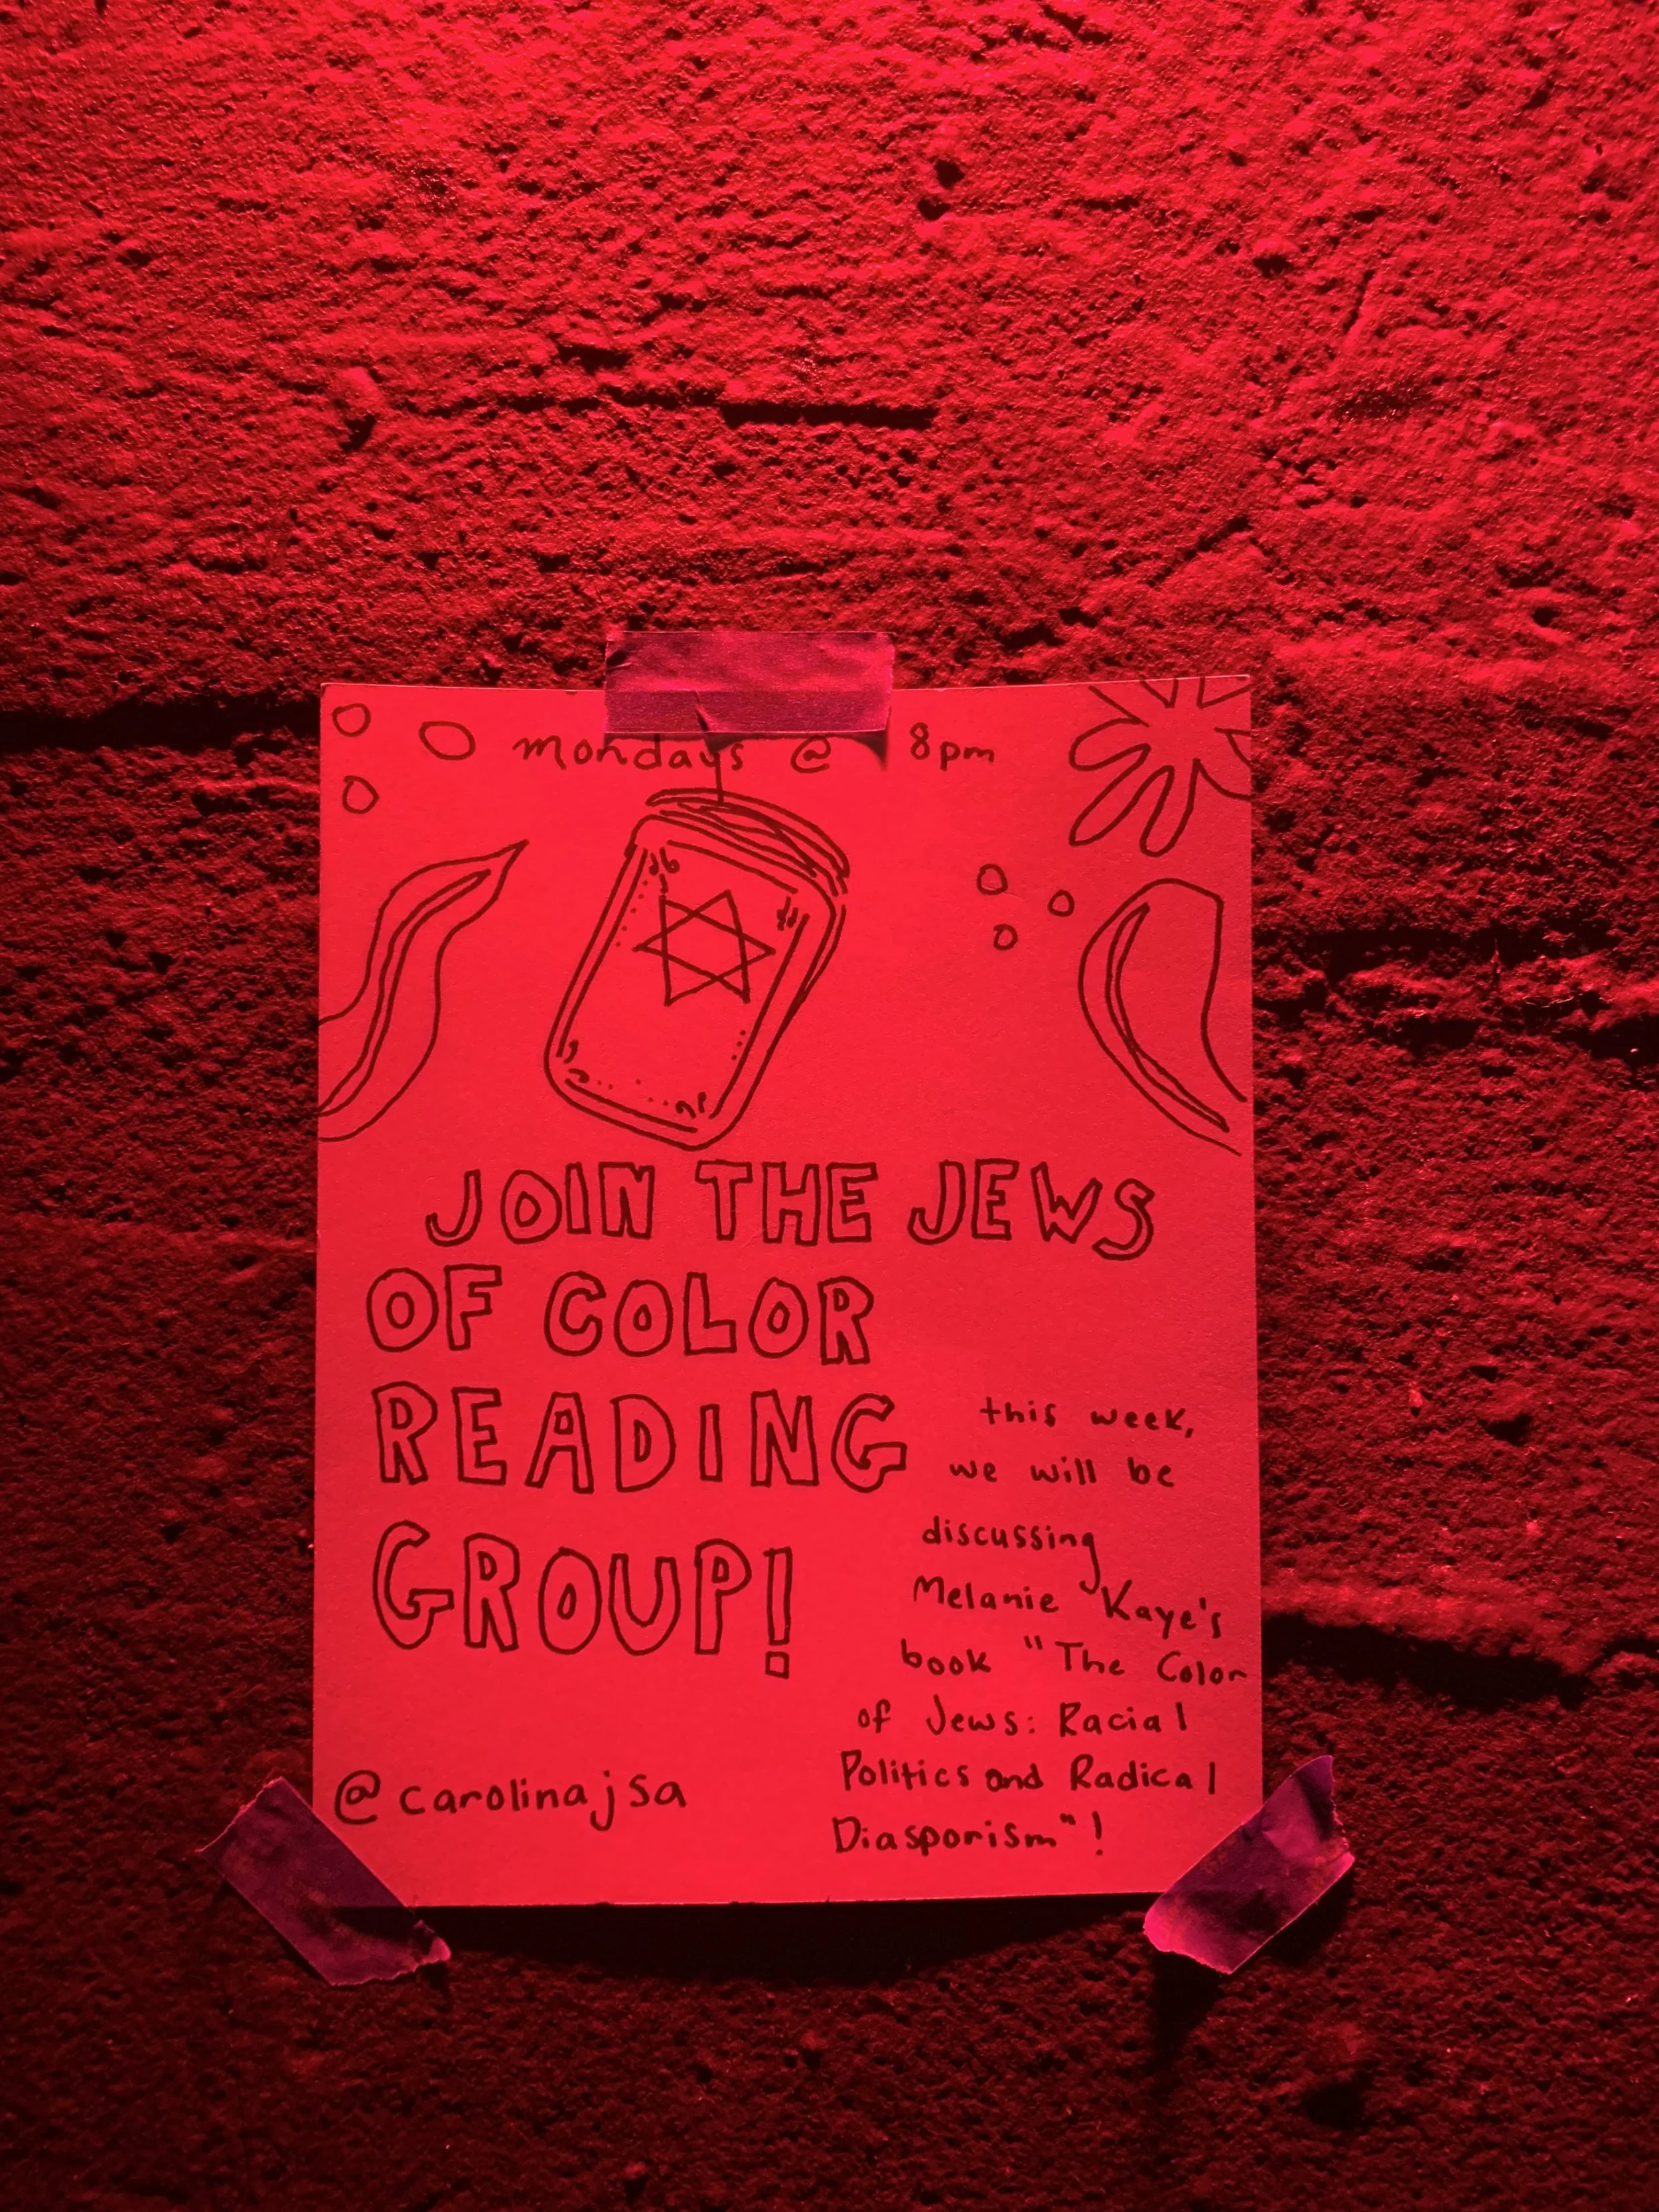 mondays @ 8pm
JOIN THE JEWS
OF COLOR
READING
GROUP!
this week,
we will be
discussing
Melanie Kaye's
book "The Color
of Jews: Racial
Politics and Radical
Diasporism"!
@carolinajsa